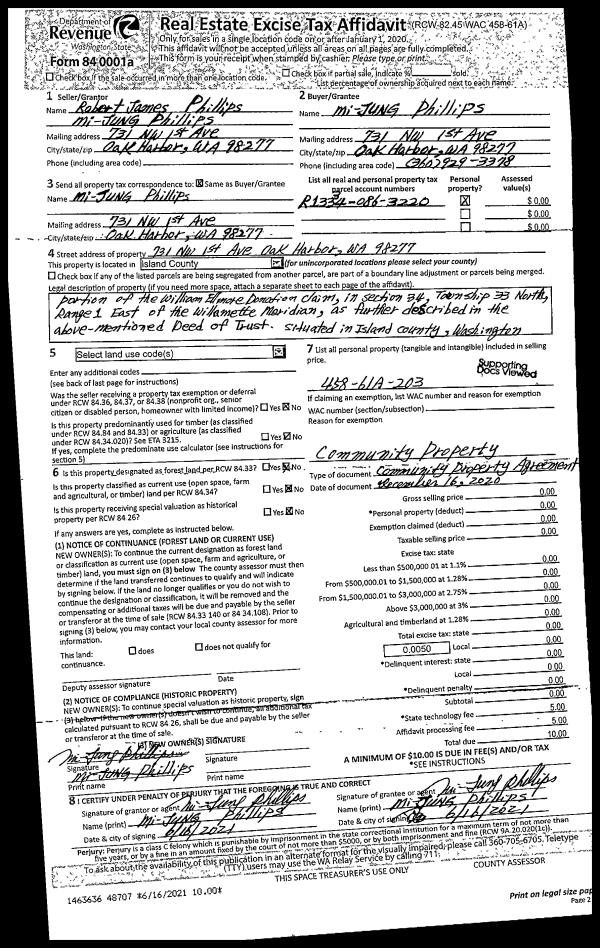 Department of
Revenue
Washington State
Form 84 0001a
Real Estate Excise Tax Affidavit (RCW 82.45 WAC 458-61A)
Only for sales in a single location code on or after January 1, 2020.
This affidavit will not be accepted unless all areas on all pages are fully completed.
This form is your receipt when stamped by cashier. Please type or print.
Check box if the sale occurred in more than one location code.
Check box if partial sale, indicate % sold.
List percentage of ownership acquired next to each name.
1 Seller/Grantor
Name Robert James Phillips
mi-JUNG Phillips
Mailing address 731 NW 1st Ave
City/state/zip Oak Harbor, WA 98277
Phone (including area code)
2 Buyer/Grantee
Name mi-JUNG Phillips
Mailing address 731 NW 1st Ave
City/state/zip Oak Harbor, WA 98277
Phone (including area code) (360)929-3378
3 Send all property tax correspondence to: ☒ Same as Buyer/Grantee
Name mi-JUNG Phillips
Mailing address 731 NW 1st Ave
City/state/zip Oak Harbor, WA 98277
List all real and personal property tax parcel account numbers
Personal property?
Assessed value(s)
R1334-086-3220 ☒ $ 0.00
☐ $ 0.00
☐ $ 0.00
4 Street address of property 731 NW 1st Ave Oak Harbor, WA 98277
This property is located in Island County (for unincorporated locations please select your county)
☐ Check box if any of the listed parcels are being segregated from another parcel, are part of a boundary line adjustment or parcels being merged.
Legal description of property (if you need more space, attach a separate sheet to each page of the affidavit).
portion of the William Ellmore Donation claim, in section 34, Township 33 North,
Range 1 East of the Willamette Meridian, as further described in the
above-mentioned Deed of Trust. situated in Island county, Washington
5 Select land use code(s)
Enter any additional codes
(see back of last page for instructions)
Was the seller receiving a property tax exemption or deferral
under RCW 84.36, 84.37, or 84.38 (nonprofit org., senior
citizen or disabled person, homeowner with limited income)? ☐ Yes ☒ No
Is this property predominantly used for timber (as classified
under RCW 84.84 and 84.33) or agriculture (as classified
under RCW 84.34.020)? See ETA 3215. ☐ Yes ☒ No
If yes, complete the predominate use calculator (see instructions for
section 5)
6 Is this property designated as forest land per RCW 84.33? ☐ Yes ☒ No
Is this property classified as current use (open space, farm
and agricultural, or timber) land per RCW 84.34? ☐ Yes ☒ No
Is this property receiving special valuation as historical
property per RCW 84.26? ☐ Yes ☒ No
If any answers are yes, complete as instructed below.
(1) NOTICE OF CONTINUANCE (FOREST LAND OR CURRENT USE)
NEW OWNER(S): To continue the current designation as forest land
or classification as current use (open space, farm and agriculture, or
timber) land, you must sign on (3) below. The county assessor must then
determine if the land transferred continues to qualify and will indicate
by signing below. If the land no longer qualifies or you do not wish to
continue the designation or classification, it will be removed and the
compensating or additional taxes will be due and payable by the seller
or transferor at the time of sale (RCW 84.33 140 or 84 34.108). Prior to
signing (3) below, you may contact your local county assessor for more
information.
This land: ☐ does ☐ does not qualify for
continuance.
Deputy assessor signature Date
(2) NOTICE OF COMPLIANCE (HISTORIC PROPERTY)
NEW OWNER(S): To continue special valuation as historic property, sign
(3) below. If the new owner(s) doesn't wish to continue, all additional tax
calculated pursuant to RCW 84 26, shall be due and payable by the seller
or transferor at the time of sale.
(3) NEW OWNER(S) SIGNATURE
mi-Jung Phillips
Signature Signature
mi-JUNG Phillips
Print name Print name
7 List all personal property (tangible and intangible) included in selling
price.
Supporting
Docs Viewed
458-61A-203
If claiming an exemption, list WAC number and reason for exemption
WAC number (section/subsection)
Reason for exemption
Community Property
Type of document Community Property Agreement
Date of document December 16, 2020
Gross selling price 0.00
*Personal property (deduct) 0.00
Exemption claimed (deduct) 0.00
Taxable selling price 0.00
Excise tax: state
Less than $500,000 01 at 1.1% 0.00
From $500,000.01 to $1,500,000 at 1.28% 0.00
From $1,500,000.01 to $3,000,000 at 2.75% 0.00
Above $3,000,000 at 3% 0.00
Agricultural and timberland at 1.28% 0.00
Total excise tax: state 0.00
0.0050 Local 0.00
*Delinquent interest: state 0.00
Local 0.00
*Delinquent penalty 0.00
Subtotal 0.00
*State technology fee 5.00
Affidavit processing fee 5.00
Total due 10.00
A MINIMUM OF $10.00 IS DUE IN FEE(S) AND/OR TAX
*SEE INSTRUCTIONS
8 I CERTIFY UNDER PENALTY OF PERJURY THAT THE FOREGOING IS TRUE AND CORRECT
Signature of grantor or agent mi-Jung Phillips
Name (print) mi-JUNG Phillips
Date & city of signing 6/16/2021
Signature of grantee or agent mi-Jung Phillips
Name (print) mi-JUNG Phillips
Date & city of signing 6/16/2021
Perjury: Perjury is a class C felony which is punishable by imprisonment in the state correctional institution for a maximum term of not more than
five years, or by a fine in an amount fixed by the court of not more than $5000, or by both imprisonment and fine (RCW 9A.20.020(1c)).
To ask about the availability of this publication in an alternate format for the visually impaired, please call 360-705-6705. Teletype
(TTY) users may use the WA Relay Service by calling 711.
THIS SPACE TREASURER'S USE ONLY COUNTY ASSESSOR
1463636 48707 *6/16/2021 10.00*
Print on legal size pap
Page 2